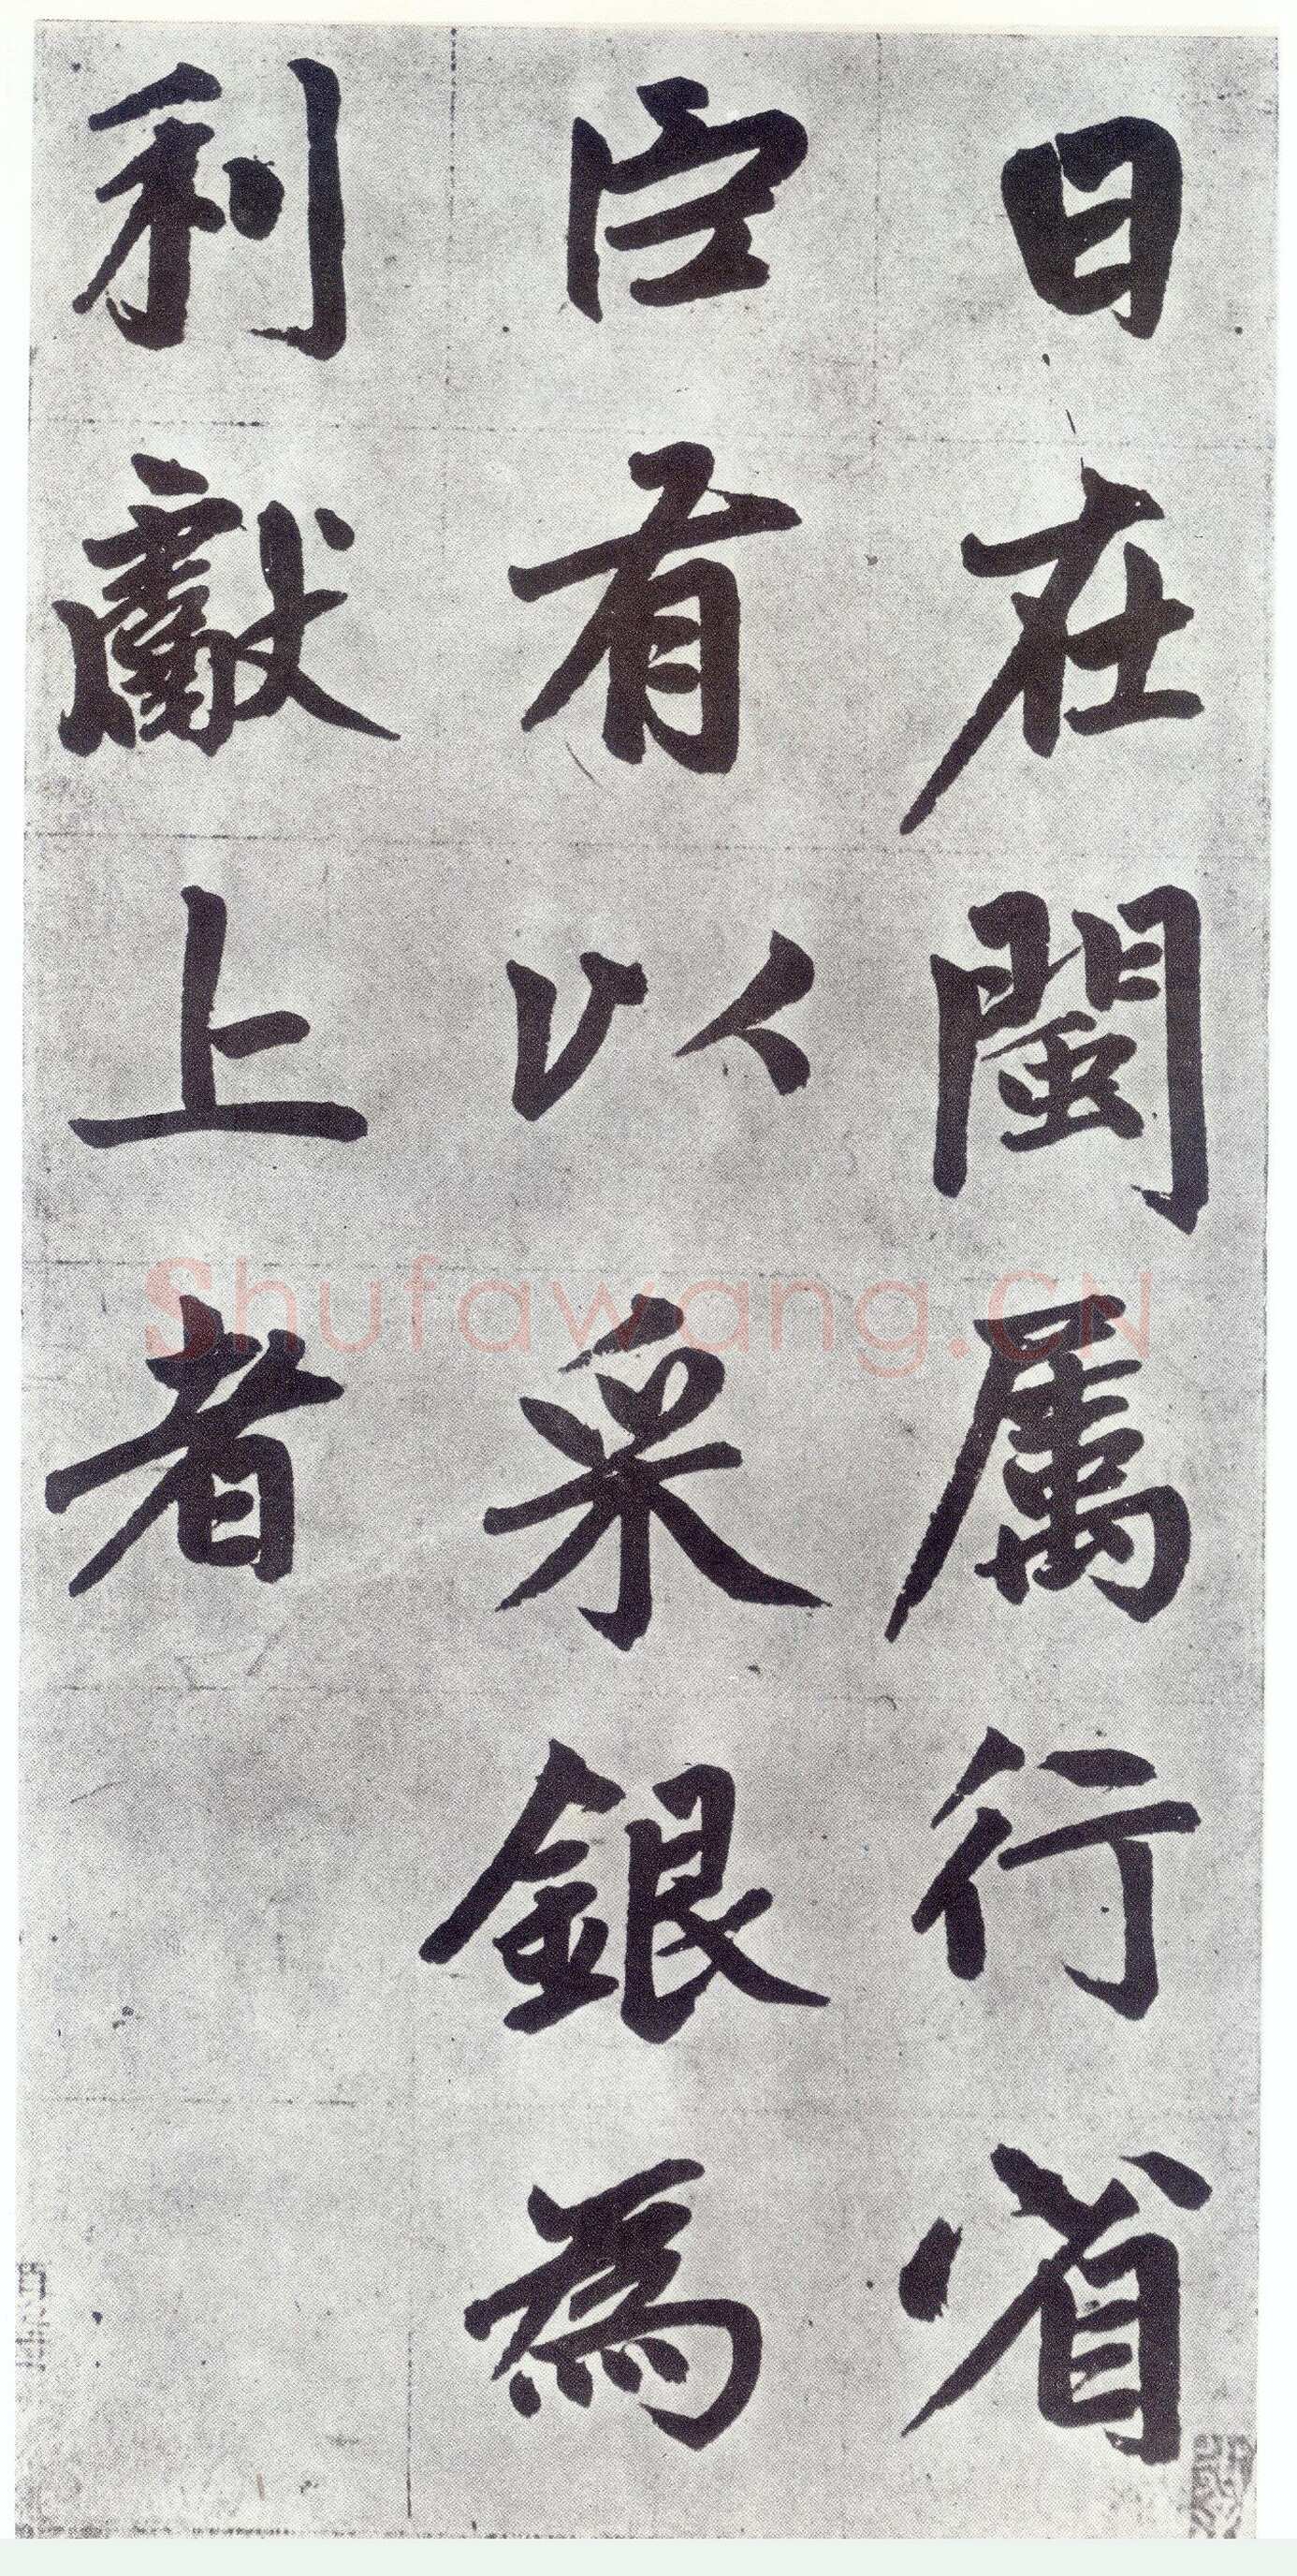 日在閩属行省
官有以采銀為
利獻上者
Shufawang.CN